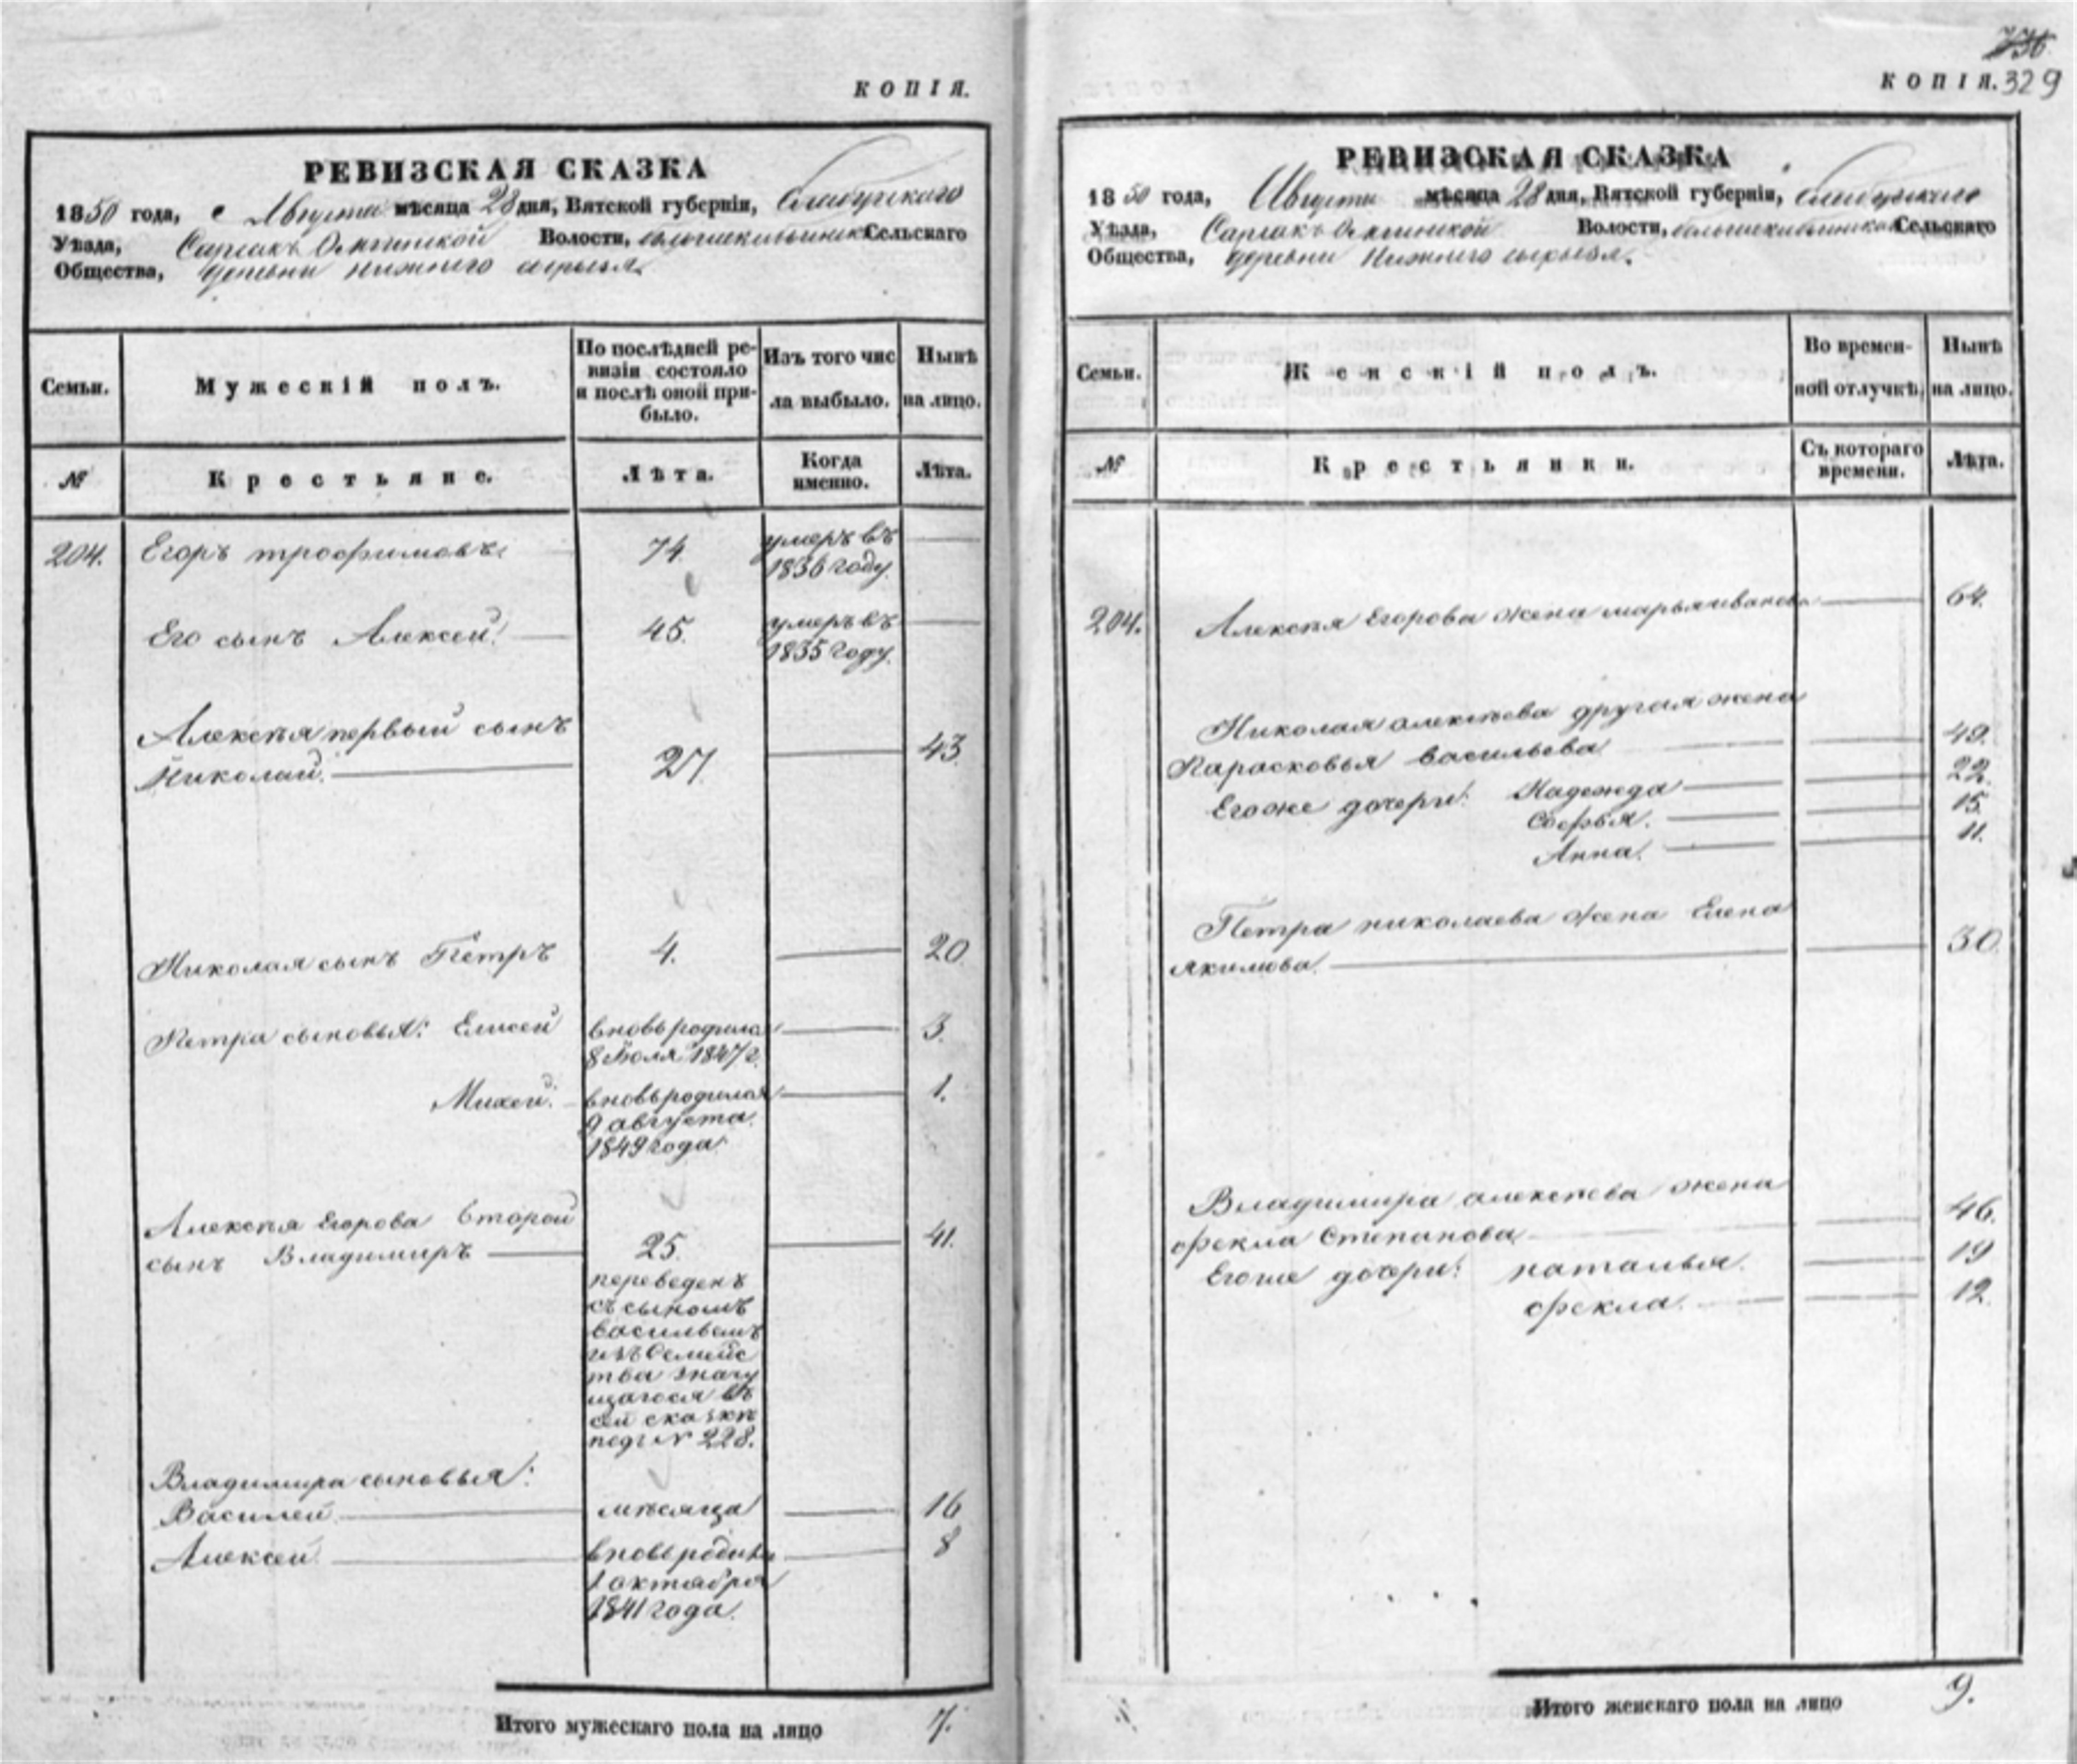 КОПІЯ.
РЕВИЗСКАЯ СКАЗКА
1850 года, Августа мѣсяца 28 дня, Вятской губерніи, Елабужскаго
Уѣзда, Волости, Сельскаго
Общества, деревни нижнего сырьезя
Семьи. Мужескій полъ. По послѣдней ре-визіи состояло и послѣ оной при-было. Изъ того чис ла выбыло. Нынѣ на лицо.
№ Крестьяне. Лѣта. Когда именно. Лѣта.
204. Егоръ трофимовъ 74. умеръ въ
1836 году.
Его сынъ Алексей 45. умеръ въ
1835 году.
Алексѣя первый сынъ
Николай. 27. 43.
Николая сынъ Петръ 4. 20.
Петра сыновья: Елисей вновь родился 3.
8 Іюля 1847 г.
Михей. вновь родился 1.
9 августа
1849 года
Алексѣя Егорова второй
сынъ Владимиръ 25. 41.
переведенъ
съ сыномъ
васильемъ
изъ семейс
тва значу
щагося въ
сей сказкѣ
подъ № 228.
Владимира сыновья:
Василей мѣсяца 16
Алексей вновь родился 8
1 октября
1841 года.
Итого мужескаго пола на лицо 7.
КОПІЯ. 329
РЕВИЗСКАЯ СКАЗКА
1850 года, Августа мѣсяца 28 дня, Вятской губерніи, Елабужскаго
Уѣзда, Волости, Сельскаго
Общества, деревни Нижнего сырьезя.
Семьи. Женскій полъ. Во времен-ной отлучкѣ. Нынѣ на лицо.
№ Крестьянки. Съ котораго времени. Лѣта.
204. Алексѣя Егорова жена марья иванова 64.
Николая алексѣева другая жена
Парасковья васильева 49.
Егоже дочери: Надежда 22.
Софья. 15.
Анна. 11.
Петра николаева жена Елена
якимова. 30.
Владимира алексѣева жена
фекла Степанова 46.
Егоже дочери: наталья. 19
фекла. 12.
Итого женскаго пола на лицо 9.